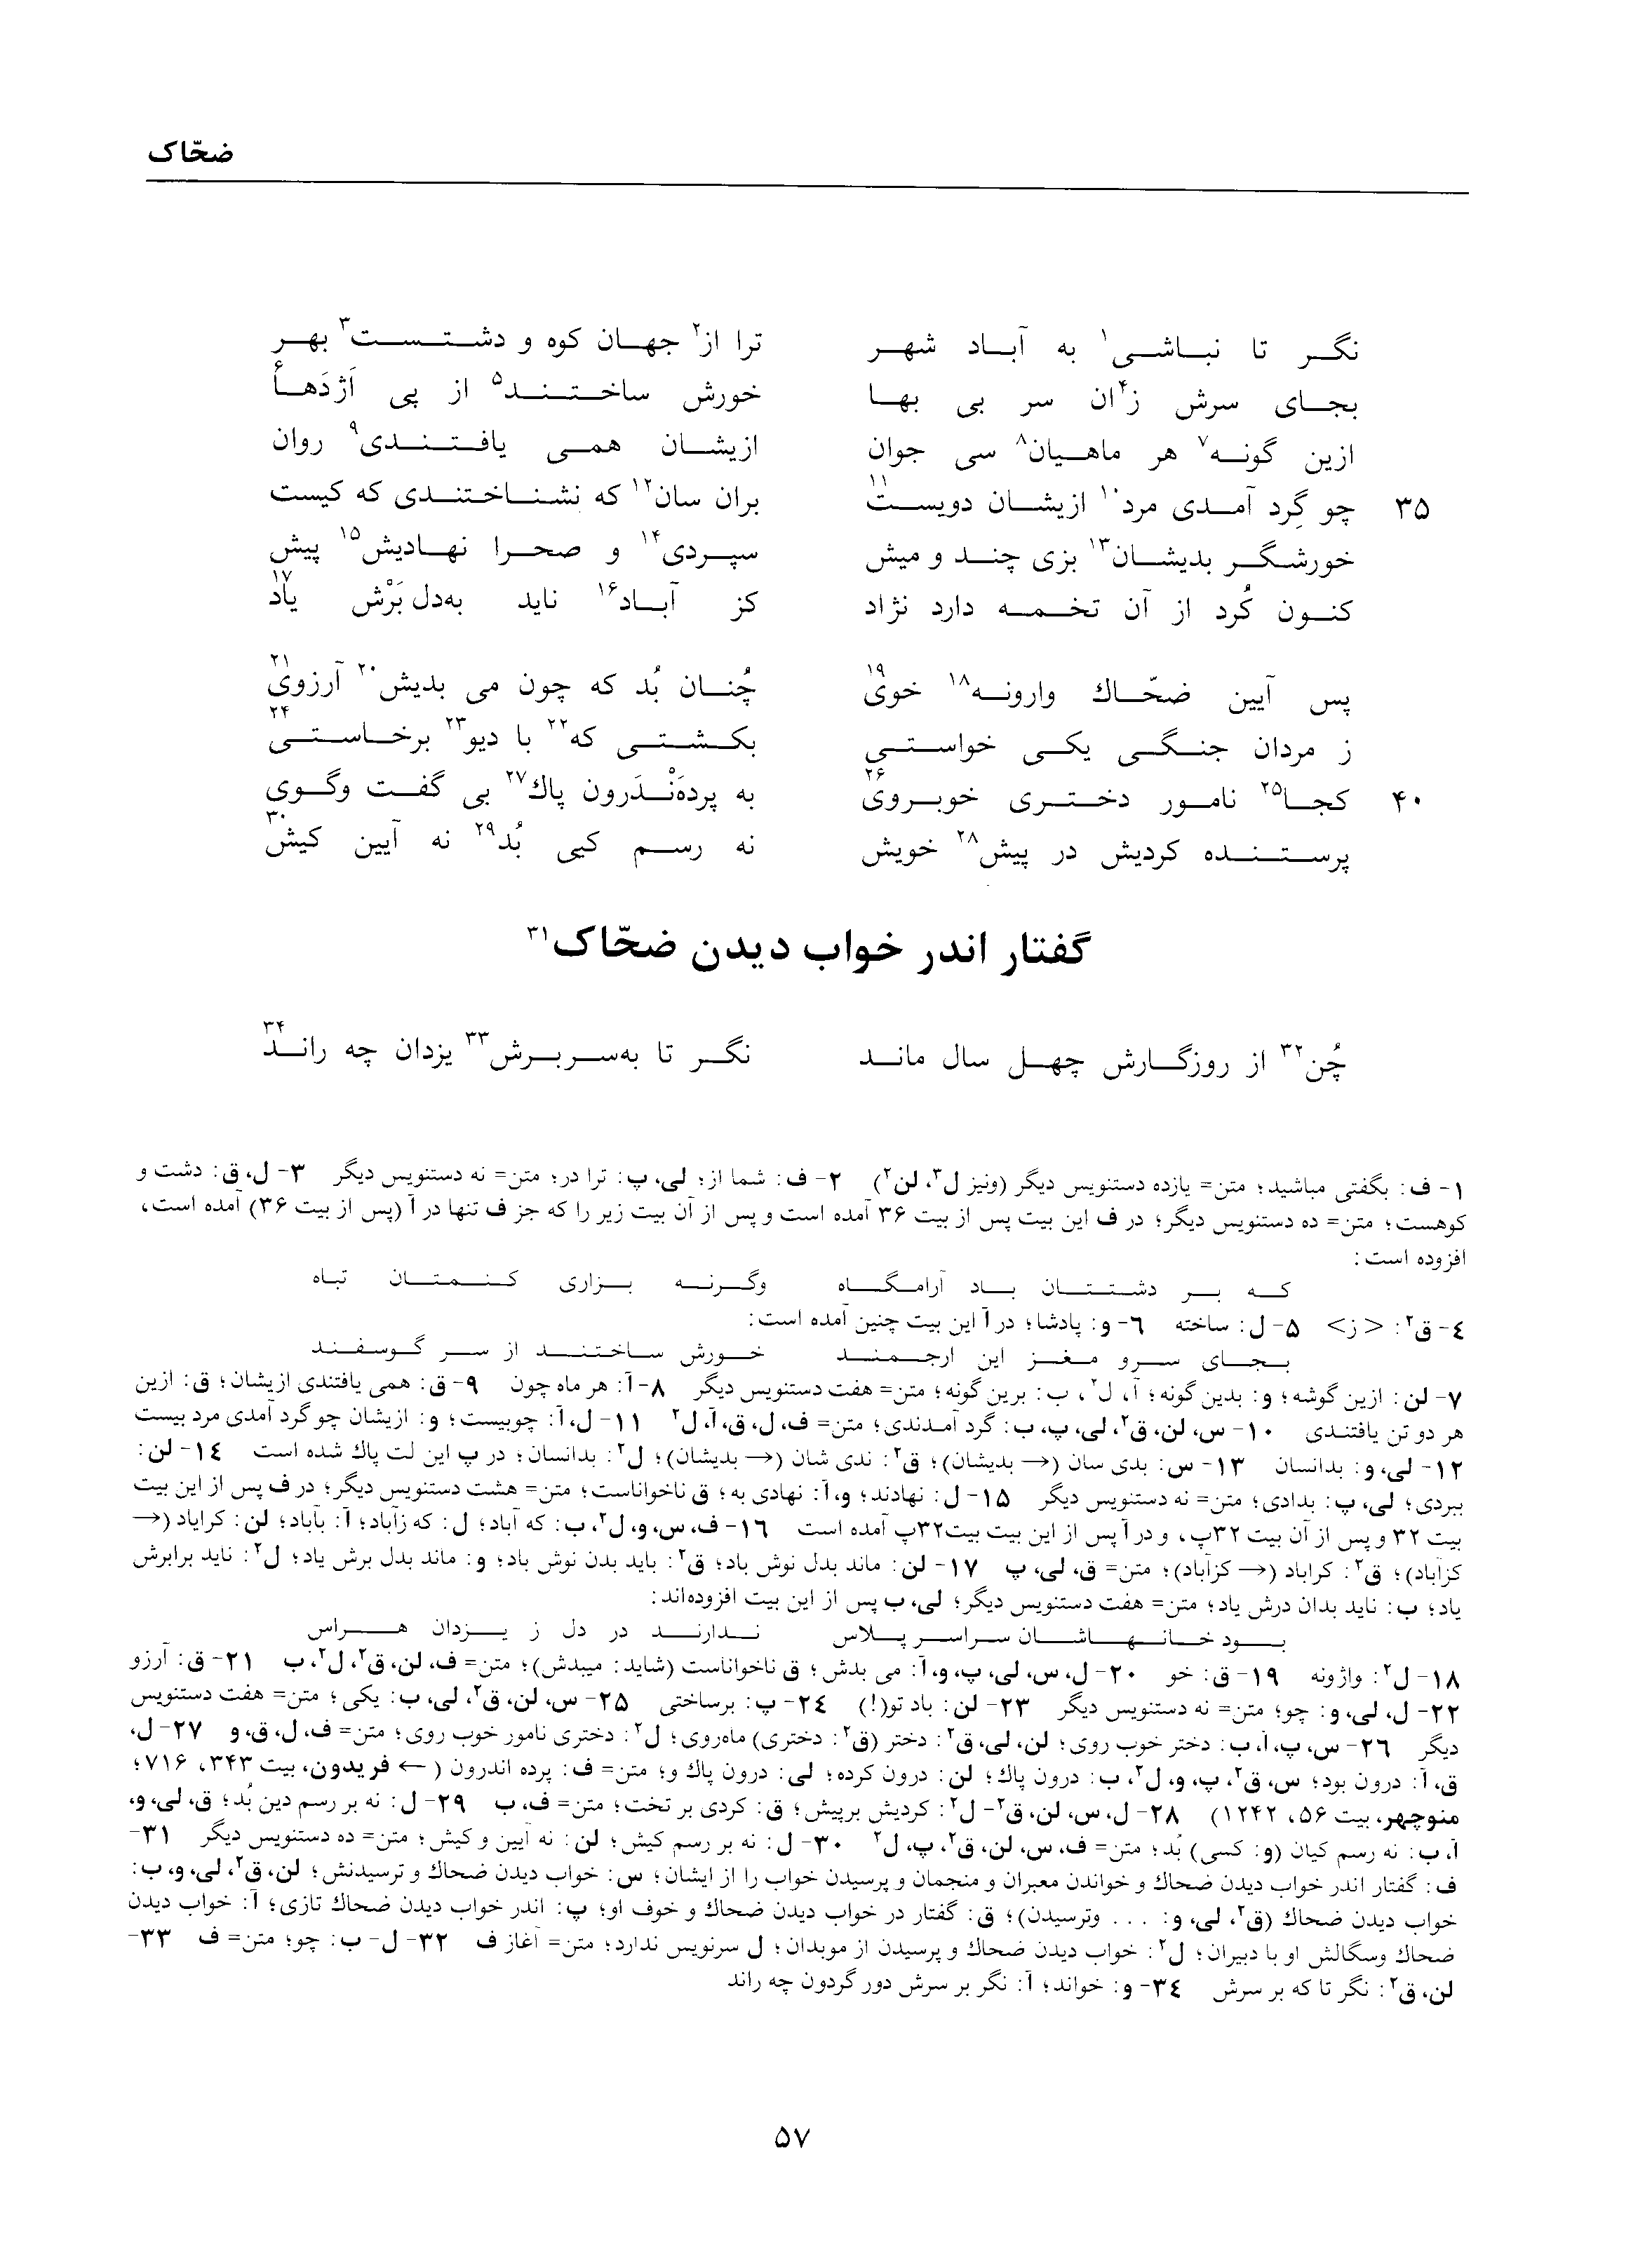 ضحّاک
نگر تا نباشی۱ به آباد شهر ترا از۲ جهان کوه و دشتست۳ بهر
بجای سرش ز۴ان سر بی بها خورش ساختند۵ از پی اَژدَها۶
ازین گونه۷ هر ماهیان۸ سی جوان ازیشان همی یافتندی۹ روان
۳۵ چو گِرد آمدی مرد۱۰ ازیشان دویست۱۱ بران سان۱۲ که نشناختندی که کیست
خورشگر بدیشان۱۳ بزی چند و میش سپردی۱۴ و صحرا نهادیش۱۵ پیش
کنون کُرد از آن تخمه دارد نژاد کز آباد۱۶ ناید به‌دل بَرْش یاد۱۷
پس آیین ضحّاك وارونه۱۸ خوی۱۹ چُنان بُد که چون می بدیش۲۰ آرزوی۲۱
ز مردان جنگی یکی خواستی بکشتی که۲۲ با دیو۲۳ برخاستی۲۴
۴۰ کجا۲۵ نامور دختری خوبروی۲۶ به پردَه‌نْدَرون پاك۲۷ بی گفت وگوی
پرستنده کردیش در پیش۲۸ خویش نه رسم کیی بُد۲۹ نه آیین کیش۳۰
گفتار اندر خواب دیدن ضحّاک۳۱
چُن۳۲ از روزگارش چهل سال ماند نگر تا به‌سربرش۳۳ یزدان چه راند۳۴
۱- ف: بگفتی مباشید؛ متن= یازده دستنویس دیگر (ونیز ل۳، لن۲) ۲- ف: شما از؛ لی، پ: ترا در؛ متن= نه دستنویس دیگر ۳- ل، ق: دشت و
کوهست؛ متن= ده دستنویس دیگر؛ در ف این بیت پس از بیت ۳۶ آمده است و پس از آن بیت زیر را که جز ف تنها در آ (پس از بیت ۳۶) آمده است،
افزوده است:
که بر دشتتان باد آرامگاه وگرنه بزاری کنمتان تباه
۴- ق۲: <ز> ۵- ل: ساخته ۶- و: پادشا؛ در آ این بیت چنین آمده است:
بجای سرو مغز این ارجمند خورش ساختند از سر گوسفند
۷- لن: ازین گوشه؛ و: بدین گونه؛ آ، ل۲، ب: برین گونه؛ متن= هفت دستنویس دیگر ۸- آ: هر ماه چون ۹- ق: همی یافتندی ازیشان؛ ق: ازین
هر دو تن یافتندی ۱۰- س، لن، ق۲، لی، پ، ب: گرد آمدندی؛ متن= ف، ل، ق، آ، ل۲ ۱۱- ل، آ: چوبیست؛ و: ازیشان چو گرد آمدی مرد بیست
۱۲- لی، و: بدانسان ۱۳- س: بدی سان (→ بدیشان)؛ ق۲: ندی شان (→ بدیشان)؛ ل۲: بدانسان؛ در پ این لت پاك شده است ۱۴- لن:
ببردی؛ لی، پ: بدادی؛ متن= نه دستنویس دیگر ۱۵- ل: نهادند؛ و، آ: نهادی به؛ ق ناخواناست؛ متن= هشت دستنویس دیگر؛ در ف پس از این بیت
بیت ۳۲ و پس از آن بیت ۳۲پ، و در آ پس از این بیت بیت۳۲پ آمده است ۱۶- ف، س، و، ل۲، ب: که آباد؛ ل: که زآباد؛ آ: بآباد؛ لن: کراباد (→
کزآباد)؛ ق۲: کراباد (→ کزآباد)؛ متن= ق، لی، پ ۱۷- لن: ماند بدل نوش باد؛ ق۲: باید بدن نوش باد؛ و: ماند بدل برش یاد؛ ل۲: ناید برابرش
یاد؛ ب: ناید بدان درش یاد؛ متن= هفت دستنویس دیگر؛ لی، ب پس از این بیت افزوده‌اند:
بود خانهاشان سراسر پلاس ندارند در دل ز یزدان هراس
۱۸- ل۲: واژونه ۱۹- ق: خو ۲۰- ل، س، لی، پ، و، آ: می بدش؛ ق ناخواناست (شاید: میبدش)؛ متن= ف، لن، ق۲، ل۲، ب ۲۱- ق: آرزو
۲۲- ل، لی، و: چو؛ متن= نه دستنویس دیگر ۲۳- لن: باد تو(!) ۲۴- پ: برساختی ۲۵- س، لن، ق۲، لی، ب: یکی؛ متن= هفت دستنویس
دیگر ۲۶- س، پ، آ، ب: دختر خوب روی؛ لن، لی، ق۲: دختر (ق۲: دختری) ماه‌روی؛ ل۲: دختری نامور خوب روی؛ متن= ف، ل، ق، و ۲۷- ل،
ق، آ: درون بود؛ س، ق۲، پ، و، ل۲، ب: درون پاك؛ لن: درون کرده؛ لی: درون پاك و؛ متن= ف: پرده اندرون (← فریدون، بیت ۳۴۳، ۷۱۶؛
منوچهر، بیت ۵۶، ۱۲۴۲) ۲۸- ل، س، لن، ق۲- ل۲: کردیش برپیش؛ ق: کردی بر تخت؛ متن= ف، ب ۲۹- ل: نه بر رسم دین بُد؛ ق، لی، و،
آ، ب: نه رسم کیان (و: کسی) بُد؛ متن= ف، س، لن، ق۲، پ، ل۲ ۳۰- ل: نه بر رسم کیش؛ لن: نه آیین و کیش؛ متن= ده دستنویس دیگر ۳۱-
ف: گفتار اندر خواب دیدن ضحاك و خواندن معبران و منجمان و پرسیدن خواب را از ایشان؛ س: خواب دیدن ضحاك و ترسیدنش؛ لن، ق۲، لی، و، ب:
خواب دیدن ضحاك (ق۲، لی، و: ... وترسیدن)؛ ق: گفتار در خواب دیدن ضحاك و خوف او؛ پ: اندر خواب دیدن ضحاك تازی؛ آ: خواب دیدن
ضحاك وسگالش او با دبیران؛ ل۲: خواب دیدن ضحاك و پرسیدن از موبدان؛ ل سرنویس ندارد؛ متن= آغاز ف ۳۲- ل- ب: چو؛ متن= ف ۳۳-
لن، ق۲: نگر تا که بر سرش ۳۴- و: خواند؛ آ: نگر بر سرش دور گردون چه راند
۵۷